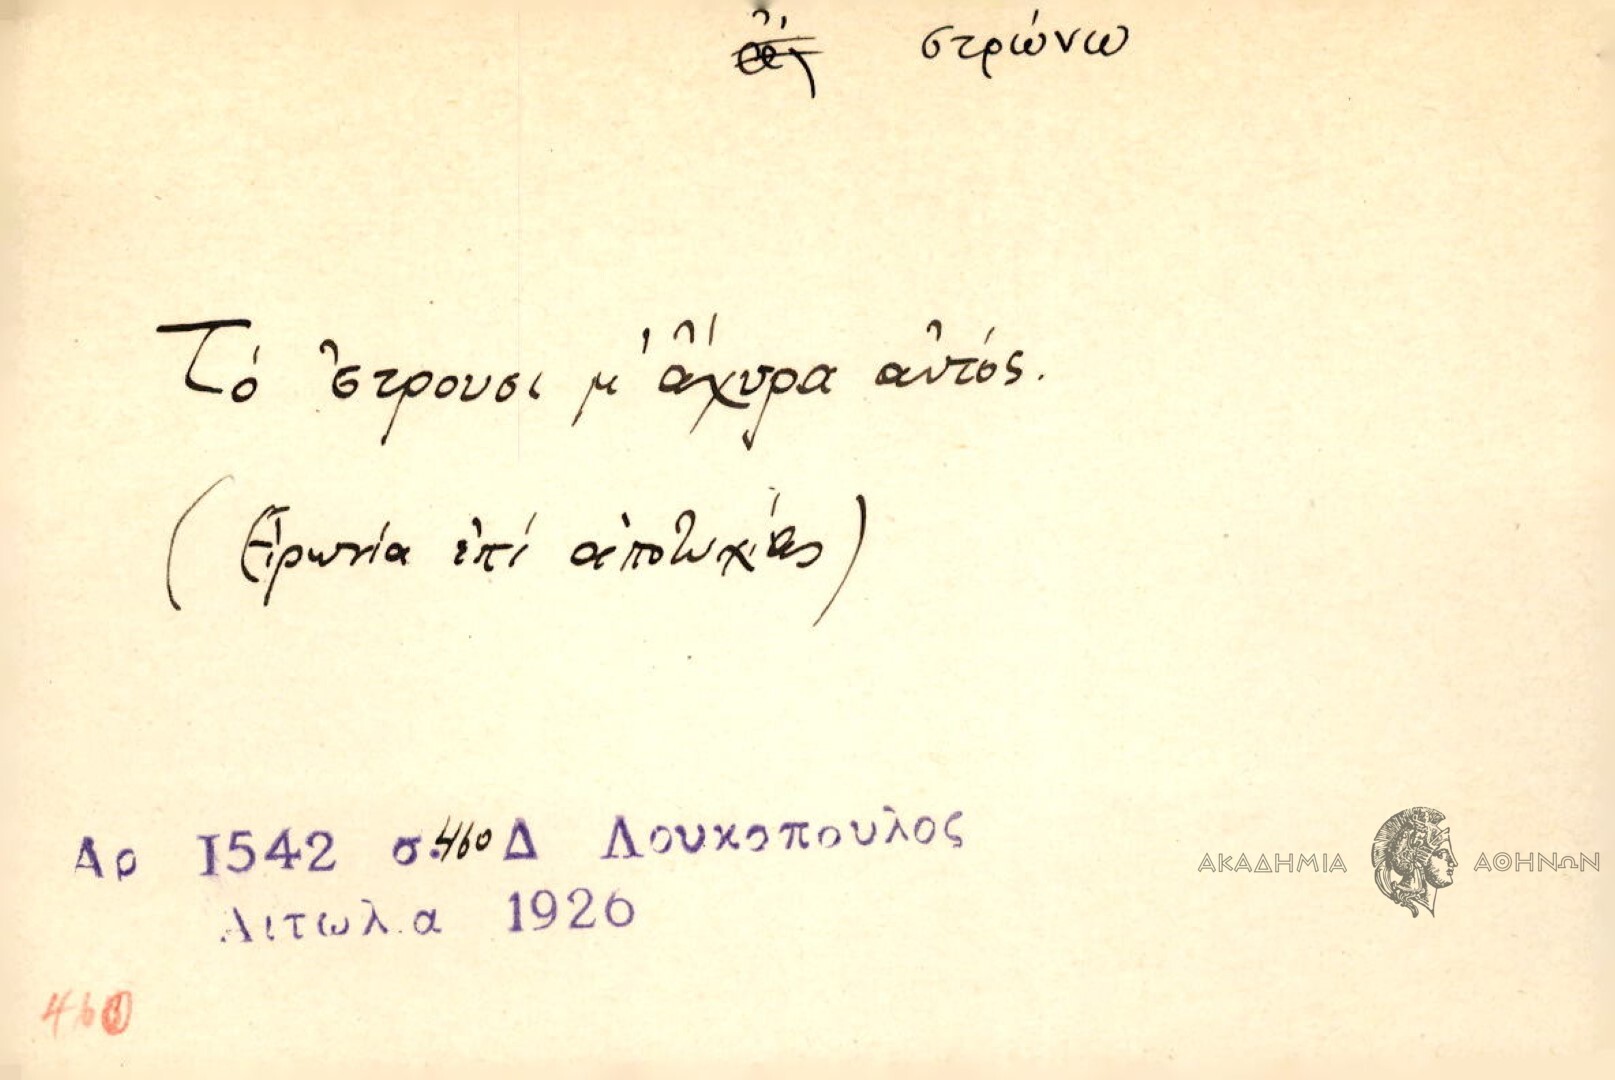 στρώνω
Τό ἔστρουσι μ' ἄχυρα αὐτός.
(Εἰρωνία ἐπί ἀποτυχίας)
Αρ 1542 σ. 460 Δ Λουκοπουλος
Αιτωλ α 1926
460
ΑΚΑΔΗΜΙΑ ΑΘΗΝΩΝ